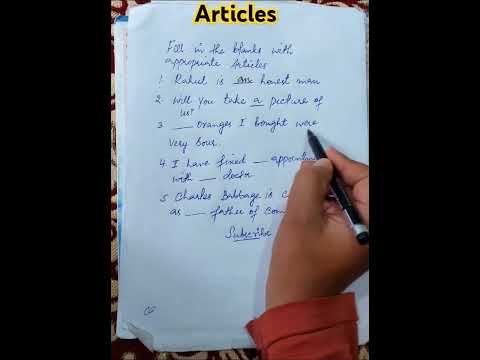 Articles
Fill in the blanks with
appropriate Articles
1. Rahul is an honest man
2. Will you take a picture of
us?
3. ___ oranges I bought were
very sour.
4. I have fixed ___
with ___ doctor
5. Charles Babbage is
as ___ father of
Subscribe